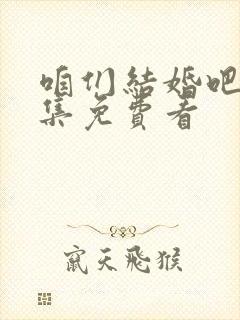 咱们结婚吧
集免费看
窜天飞猴